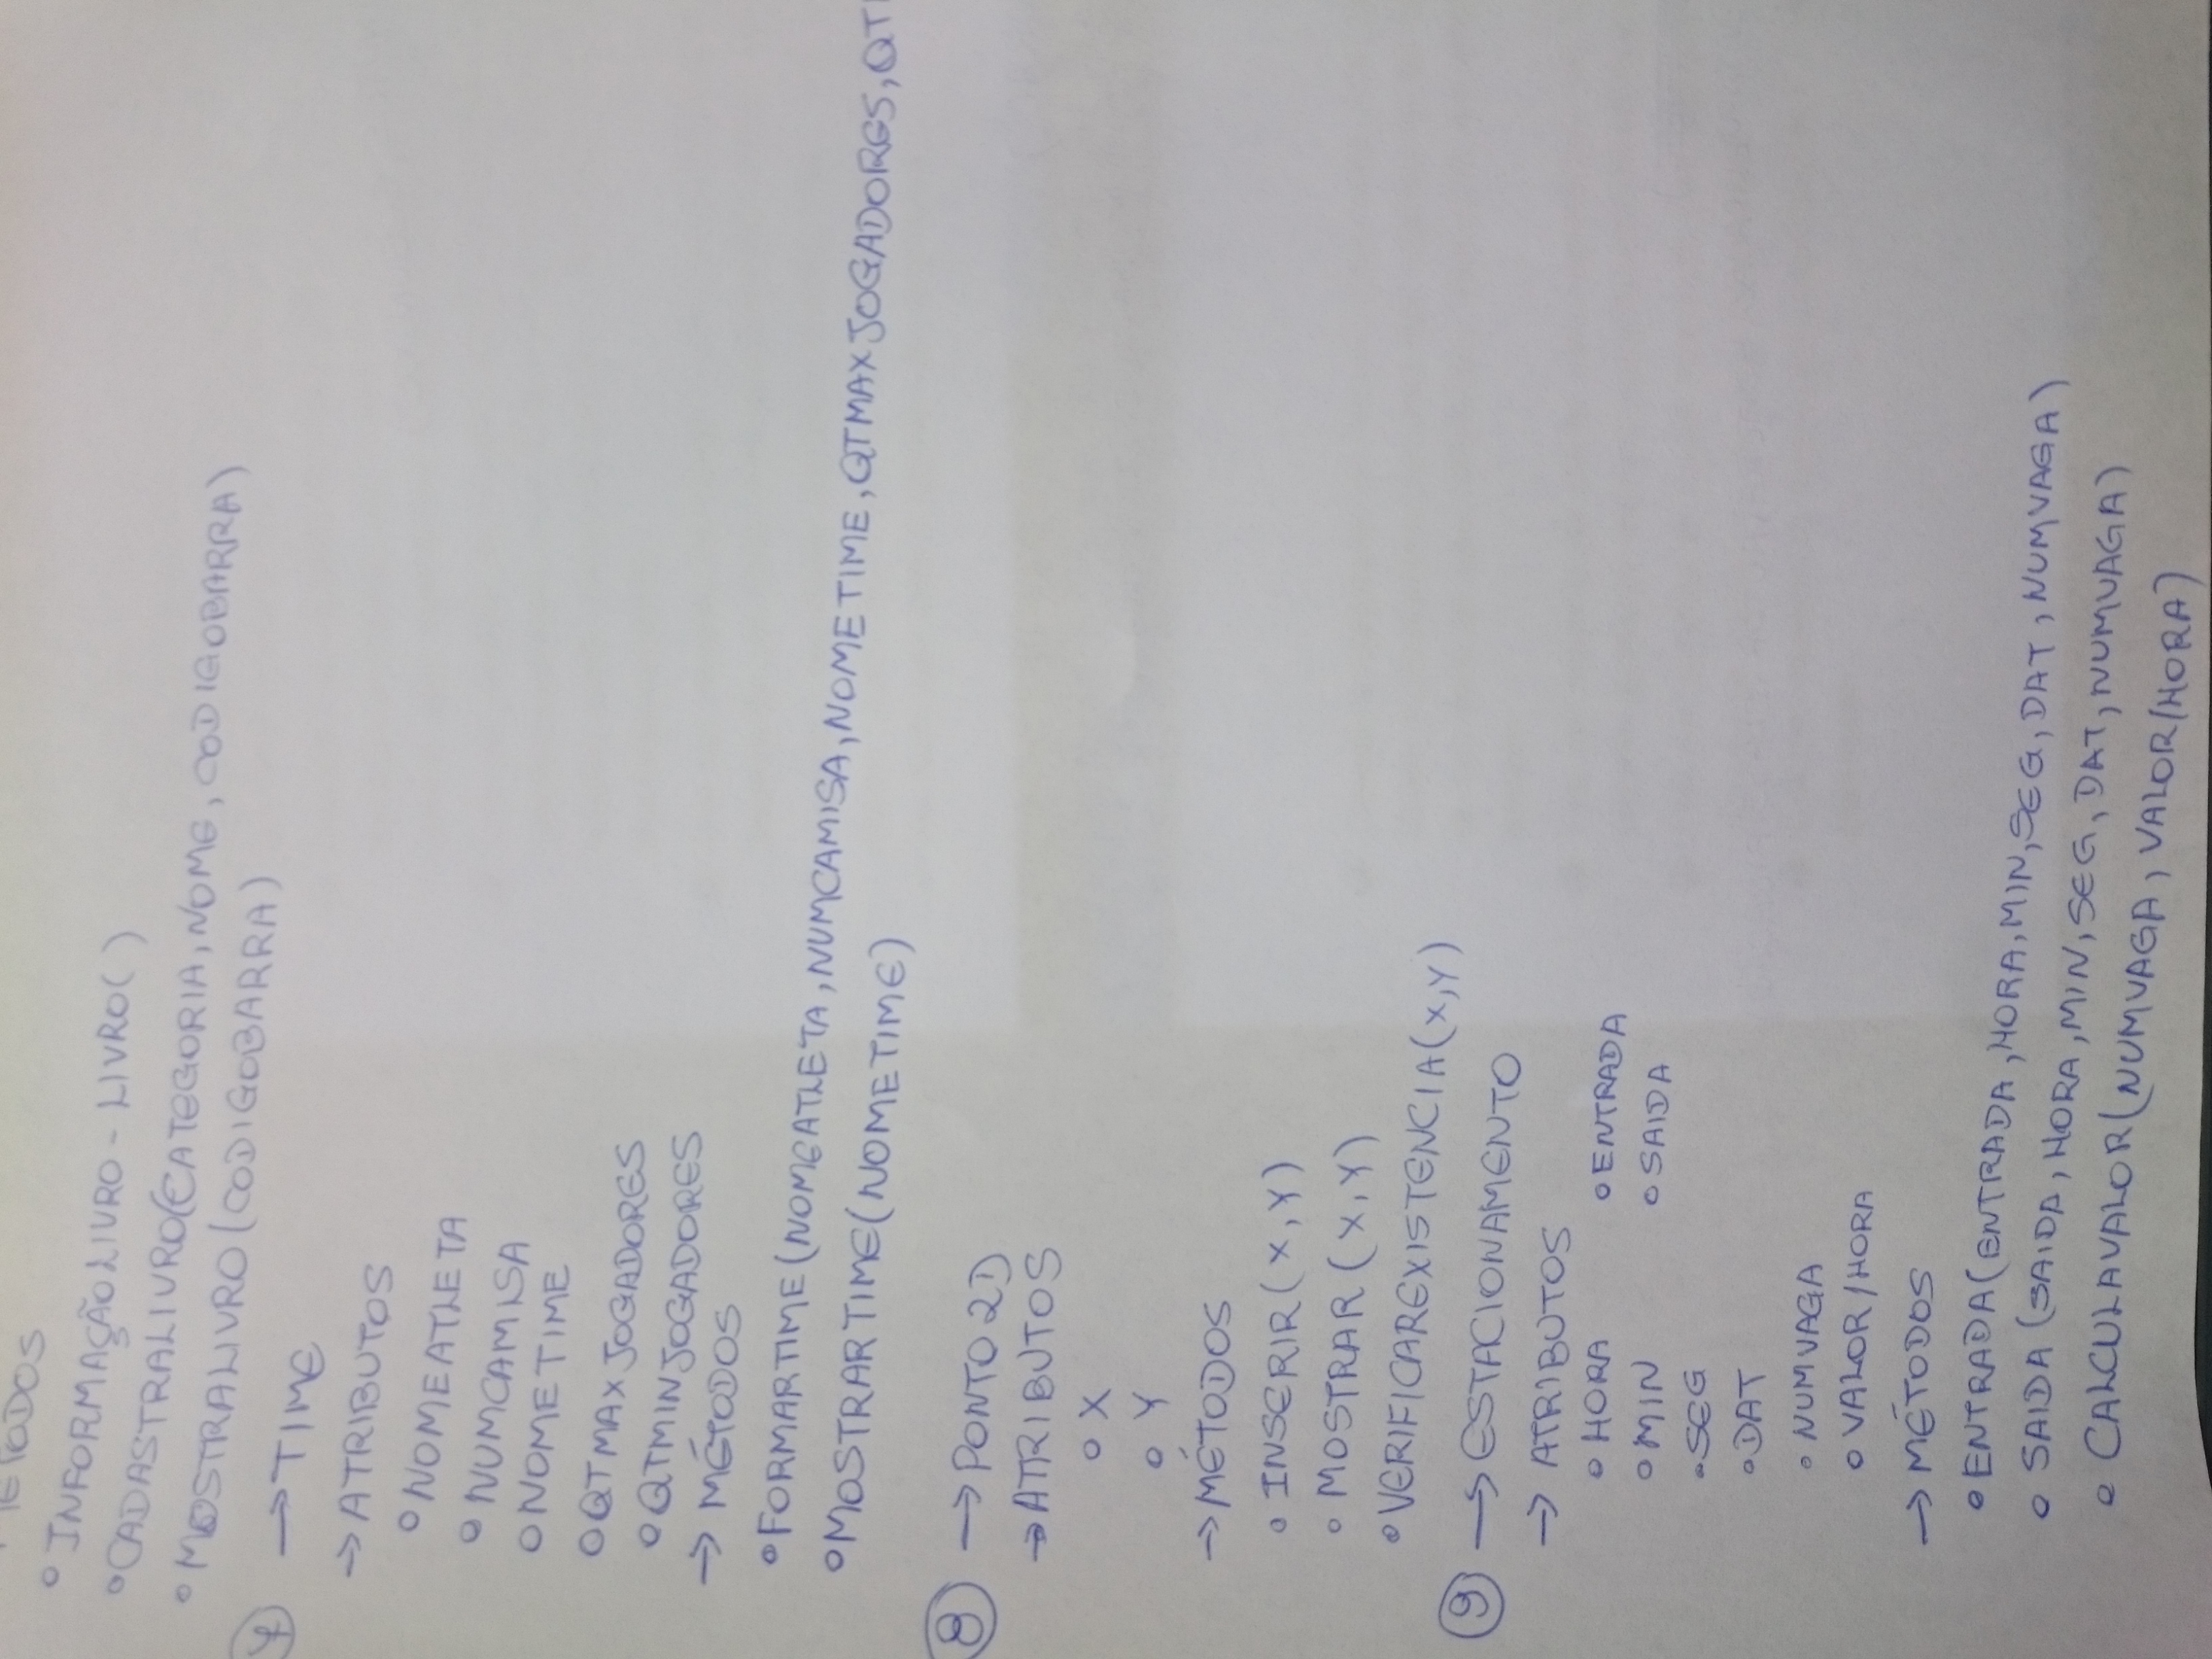 MÉTODOS
o INFORMAÇÃOLIVRO - LIVRO( )
o CADASTRALIVRO(CATEGORIA, NOME, CODIGOBARRA)
o MOSTRALIVRO(CODIGOBARRA)
7 → TIME
→ ATRIBUTOS
o NOMEATLETA
o NUMCAMISA
o NOMETIME
o QTMAXJOGADORES
o QTMINJOGADORES
→ MÉTODOS
o FORMARTIME(NOMEATLETA, NUMCAMISA, NOMETIME, QTMAXJOGADORES, QT
o MOSTRARTIME(NOMETIME)
8 → PONTO2D
→ ATRIBUTOS
o X
o Y
→ MÉTODOS
o INSERIR(X,Y)
o MOSTRAR(X,Y)
o VERIFICAREXISTENCIA(X,Y)
9 → ESTACIONAMENTO
→ ATRIBUTOS
o HORA o ENTRADA
o MIN o SAIDA
o SEG
o DAT
o NUMVAGA
o VALOR/HORA
→ MÉTODOS
o ENTRADA(ENTRADA, HORA, MIN, SEG, DAT, NUMVAGA)
o SAIDA(SAIDA, HORA, MIN, SEG, DAT, NUMVAGA)
o CALCULAVALOR(NUMVAGA, VALOR/HORA)